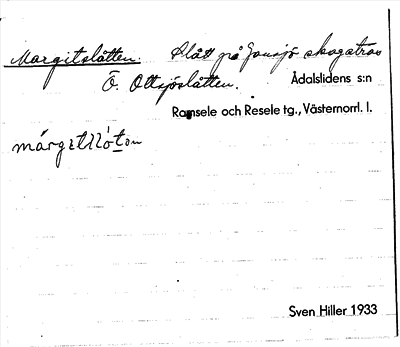 Margitslåtten. Slåt på Jansjö skogstrac
Ö. Ottsjöslåtten.
Ådalslidens s:n
Ramsele och Resele tg., Västernorrl. l.
Sven Hiller 1933